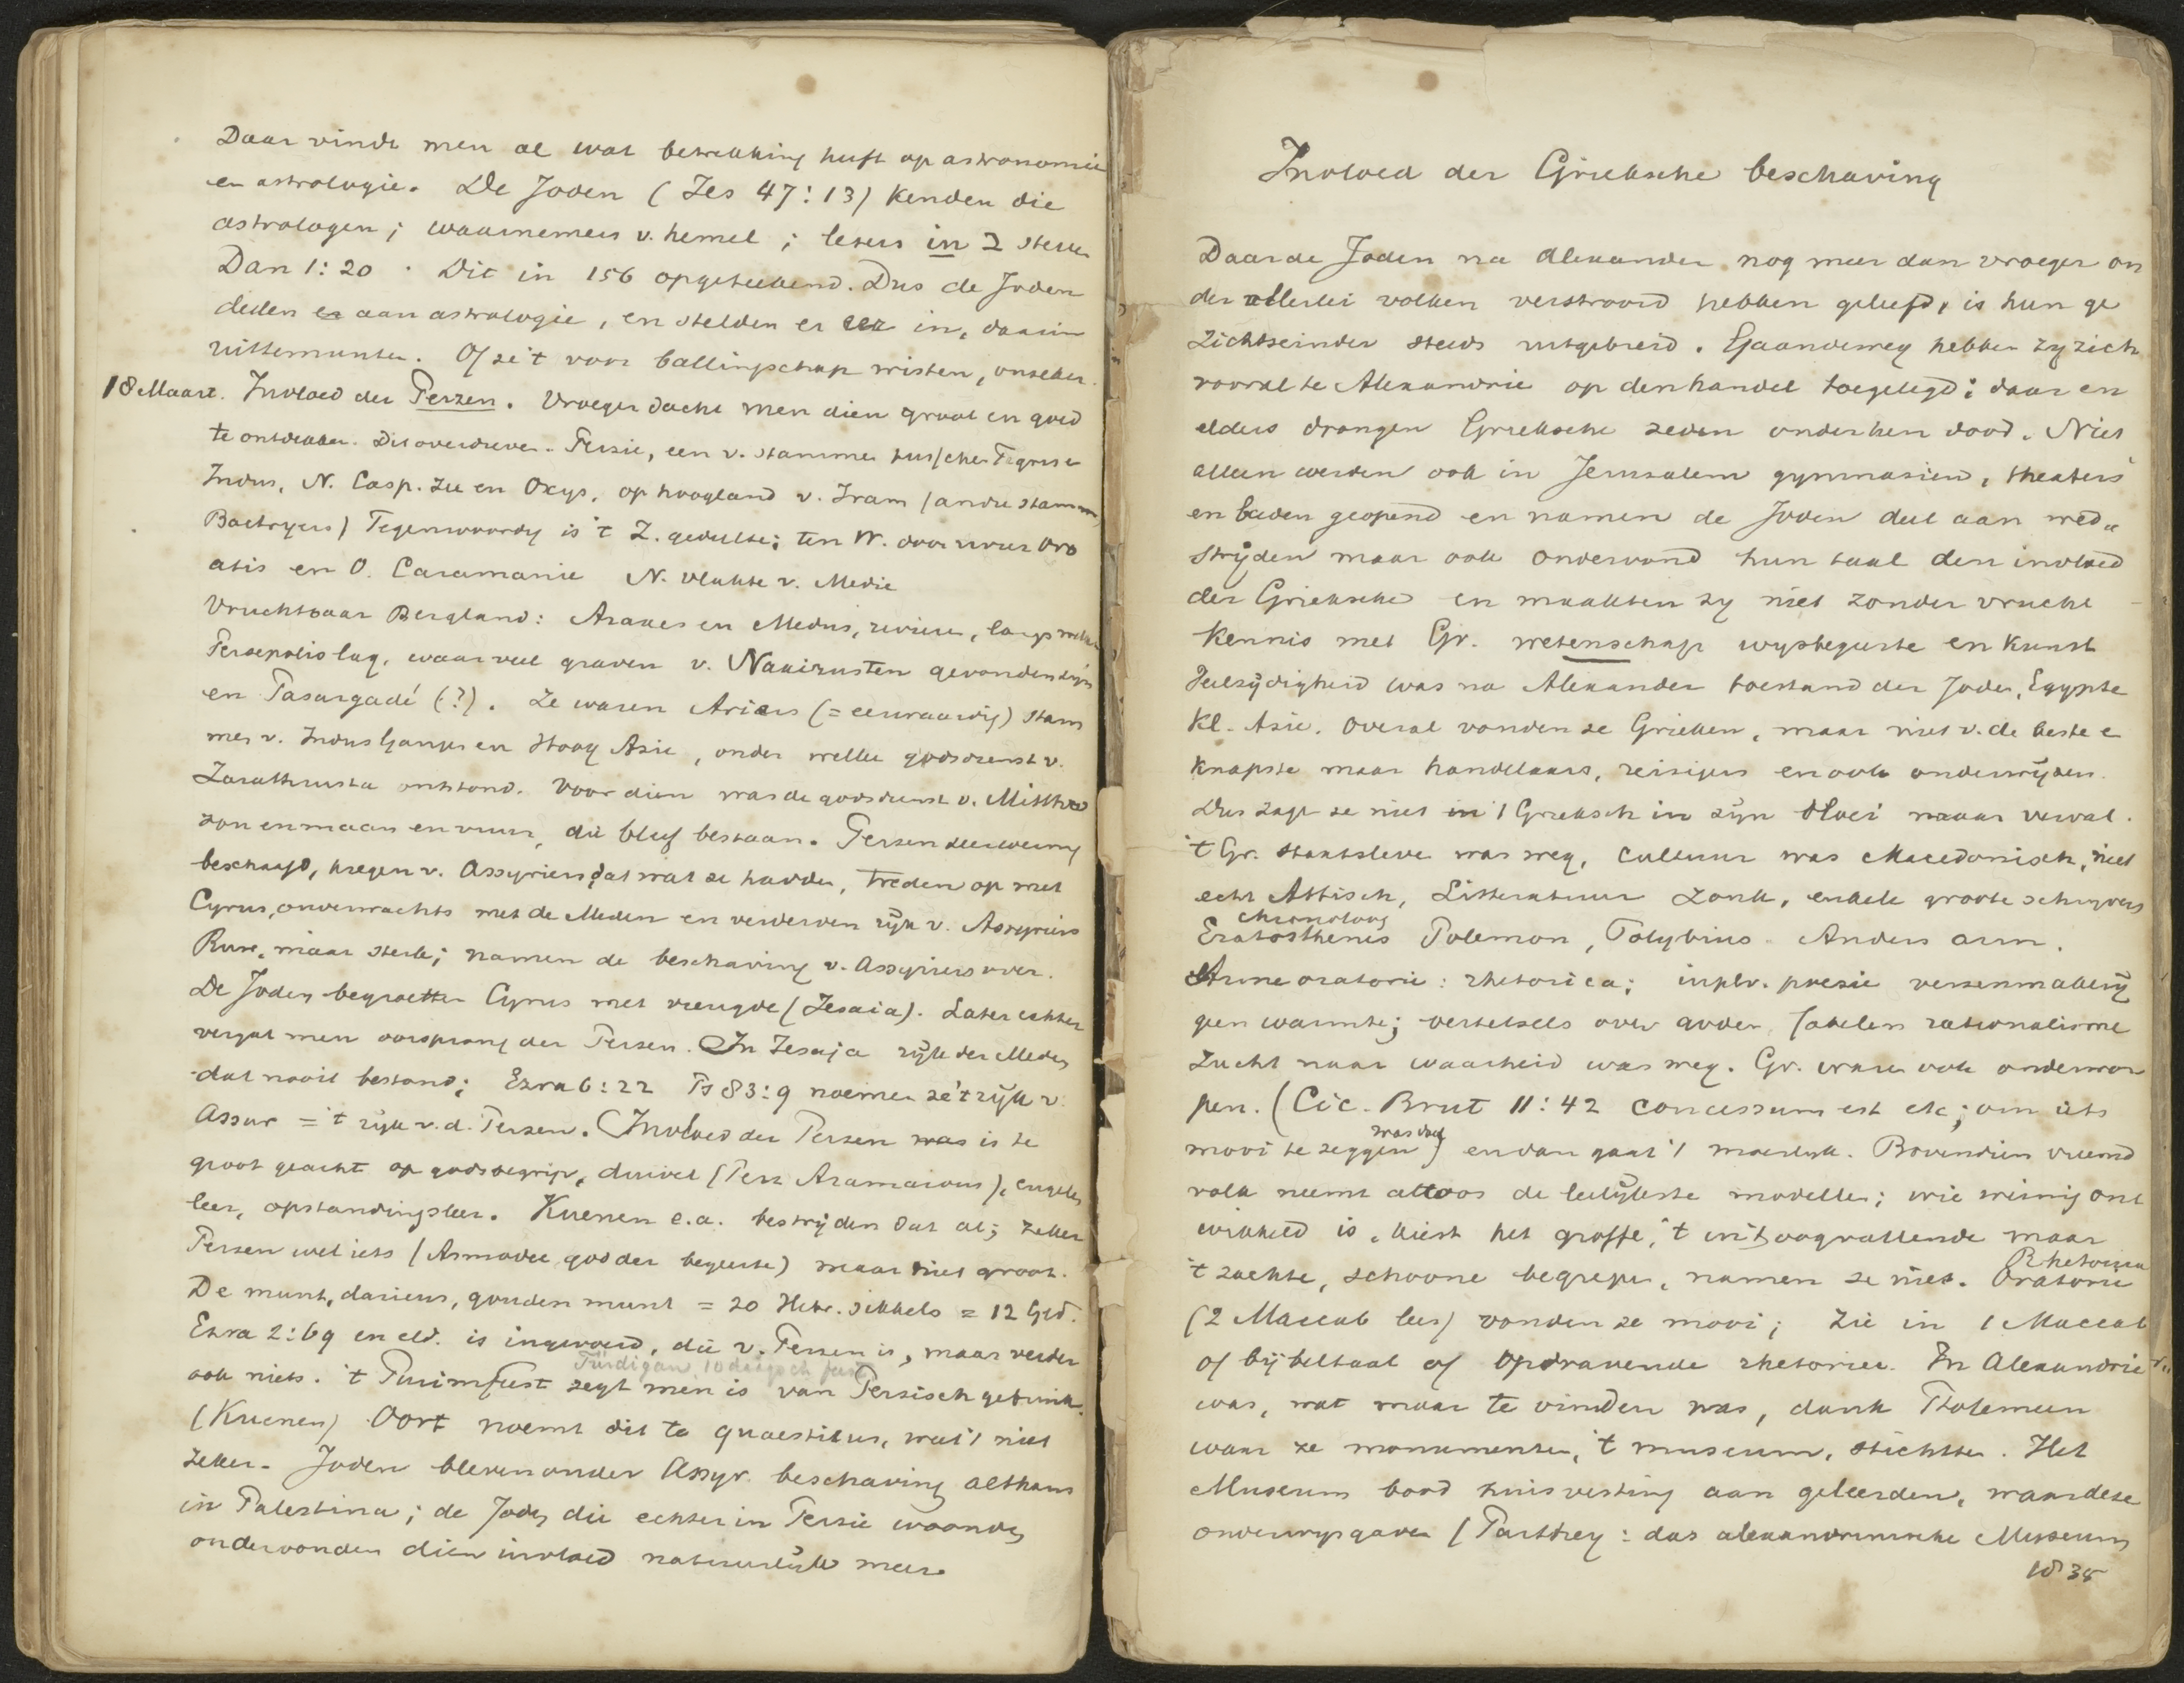 Daar vindt men al wat betrekking heeft op astronomie
en astrologie. De Joden (Jes 47:13) kenden die
astrologen; waarnemers v. hemel; lezers in 2 sterren
Dan 1:20. Dit in 156 opgeteekend. Dus de Joden
deden er aan astrologie, en stelden er eer in, daarin
uittemunten. Of ze 't voor ballingschap wisten, onzeker.
18 Maart. Invloed der Perzen. Vroeger dacht men dien groot en goed
te ontdekken. Dit overdreven. Perzie, een v. stammen tusschen Tigris e
Indus, N. Casp. Zee en Oxys, op hoogland v. Iram (andre stammen
Bactryers) Tegenwoordig is 't Z. gedeelte; ten W. door rivier Oro
atis en O. Caramanie N. vlakte v. Medie
Vruchtbaar Bergland: Araxes en Medus, rivieren, langs welke
Persepolis lag, waar veel graven v. gevonden zijn
en Pasargadé (?). Ze waren Ariers (= eerwaardig) stam
men v. Indus Ganges en Hoog Asie, onder welke godsdienst v.
Zarathrusta ontstond. Voor dien was de godsdienst v. Mithra
zon en maan en vuur, die bleef bestaan. Perzen zeer weinig
beschaafd, kregen v. Assyriers dat wat ze hadden, treden op met
Cyrus, onverwachts met de Meden en verderven rijk v. Assyriers
Ruw, maar sterk; namen de beschaving v. Assyriers over.
De Joden begroetten Cyrus met vreugde (Jesaia). Later echter
vergat men oorsprong der Perzen. In Jesaja rijk der Meden
dat nooit bestond; Ezra 6:22 Ps 83:9 noemen ze 't rijk v.
Assur = 't rijk v.d. Perzen. Invloed der Perzen was is te
groot geacht op godsbegrip, duivel (Perz ), engelen
leer, opstandingsleer. Kuenen e.a. bestrijden dat al; zeker
Perzen wel iets (Asmodee god der begeerte) maar niet groot.
De munt, daricus, gouden munt = 20 Hebr. sikkels = 12 Gld.
Ezra 2:69 en eld. is ingevoerd, die v. Perzen is, maar verder
Fürdigan 10 daagsch feest
ook niets. 't Purimfeest zegt men is van Persisch gebruik.
(Kuenen) Oort noemt dit te quaestieus, wat 't niet
zeker. Joden bleven onder Assyr. beschaving althans
in Palestina; de Joden die echter in Perzie woonden
ondervonden dien invloed natuurlijk meer.
Invloed der Grieksche beschaving
Daar de Joden na Alexander nog meer dan vroeger on
der allerlei volken verstrooid hebben geleefd, is hun ge
zichtseinder steeds uitgebreid. Gaandeweg hebben zy zich
vooral te Alexandrie op den handel toegelegd; daar en
elders drongen Grieksche zeden onder hen door. Niet
alleen werden ook in Jerusalem gymnasien, theaters
en baden geopend en namen de Joden deel aan wed=
strijden maar ook ondervond hun taal den invloed
der Grieksche en maakten zy niet zonder vrucht
kennis met Gr. wetenschap wysbegeerte en kunst
Veelzijdigheid was na Alexander toestand der Joden, Egypte
Kl. Asie. Overal vonden ze Grieken, maar niet v. de beste e
knapste maar handelaars, reizigers en ook onderwijzers.
Dus zagen ze niet in 't Grieksch in zijn bloei maar verval.
't Gr. staatsleven was weg, cultuur was Macedonisch, niet
echt Attisch, Litteratuur zonk, enkele groote schryvers
chronoloog
Eratosthenes Polemon, Polybius. Anders arm.
Arme oratorie: rhetorica; in plv. poesie verzenmakerij
geen warmte; vertelsels over goden, fabelen rationalisme
Zucht naar waarheid was weg. Gr. waren ook onderwor
pen. (Cic. Brut 11:42 concessum est etc; om iets
was doel
mooi te zeggen) en dan gaat 't moeilyk. Bovendien vreemd
volk neemt altoos de leelijkste modellen; wie weinig ont
wikkeld is, kiest het groffe, 't in 't oogvallende maar
Rhetorica
't zachte, schoone begrepen, namen ze niet. Oratorie
(2 Maccab lees) vonden ze mooi; zie in 1 Maccab
of bijbeltaal of opdravende rhetoriek. In Alexandrie
was, wat maar te vinden was, dank Ptolemeen
waar ze monumenten, 't museum, stichtten. Het
Museum bood huisvesting aan geleerden, waar deze
onderwys gaven (Parthey: das alexandrinische Museum
1838